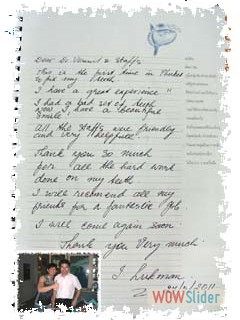 Dear Dr. & Staffs
This is the first time in Phuket
to fix my teeth
I have a great experience!!
I had a bad set of teeth
now I have a beautiful
Smile!
All the staffs are friendly
and very helpful!
Thank you so much
for all the hard work
done on my teeth
I will recommend all my
friends for a fantastic job
I will come again soon
Thank you very much
WOWSlider